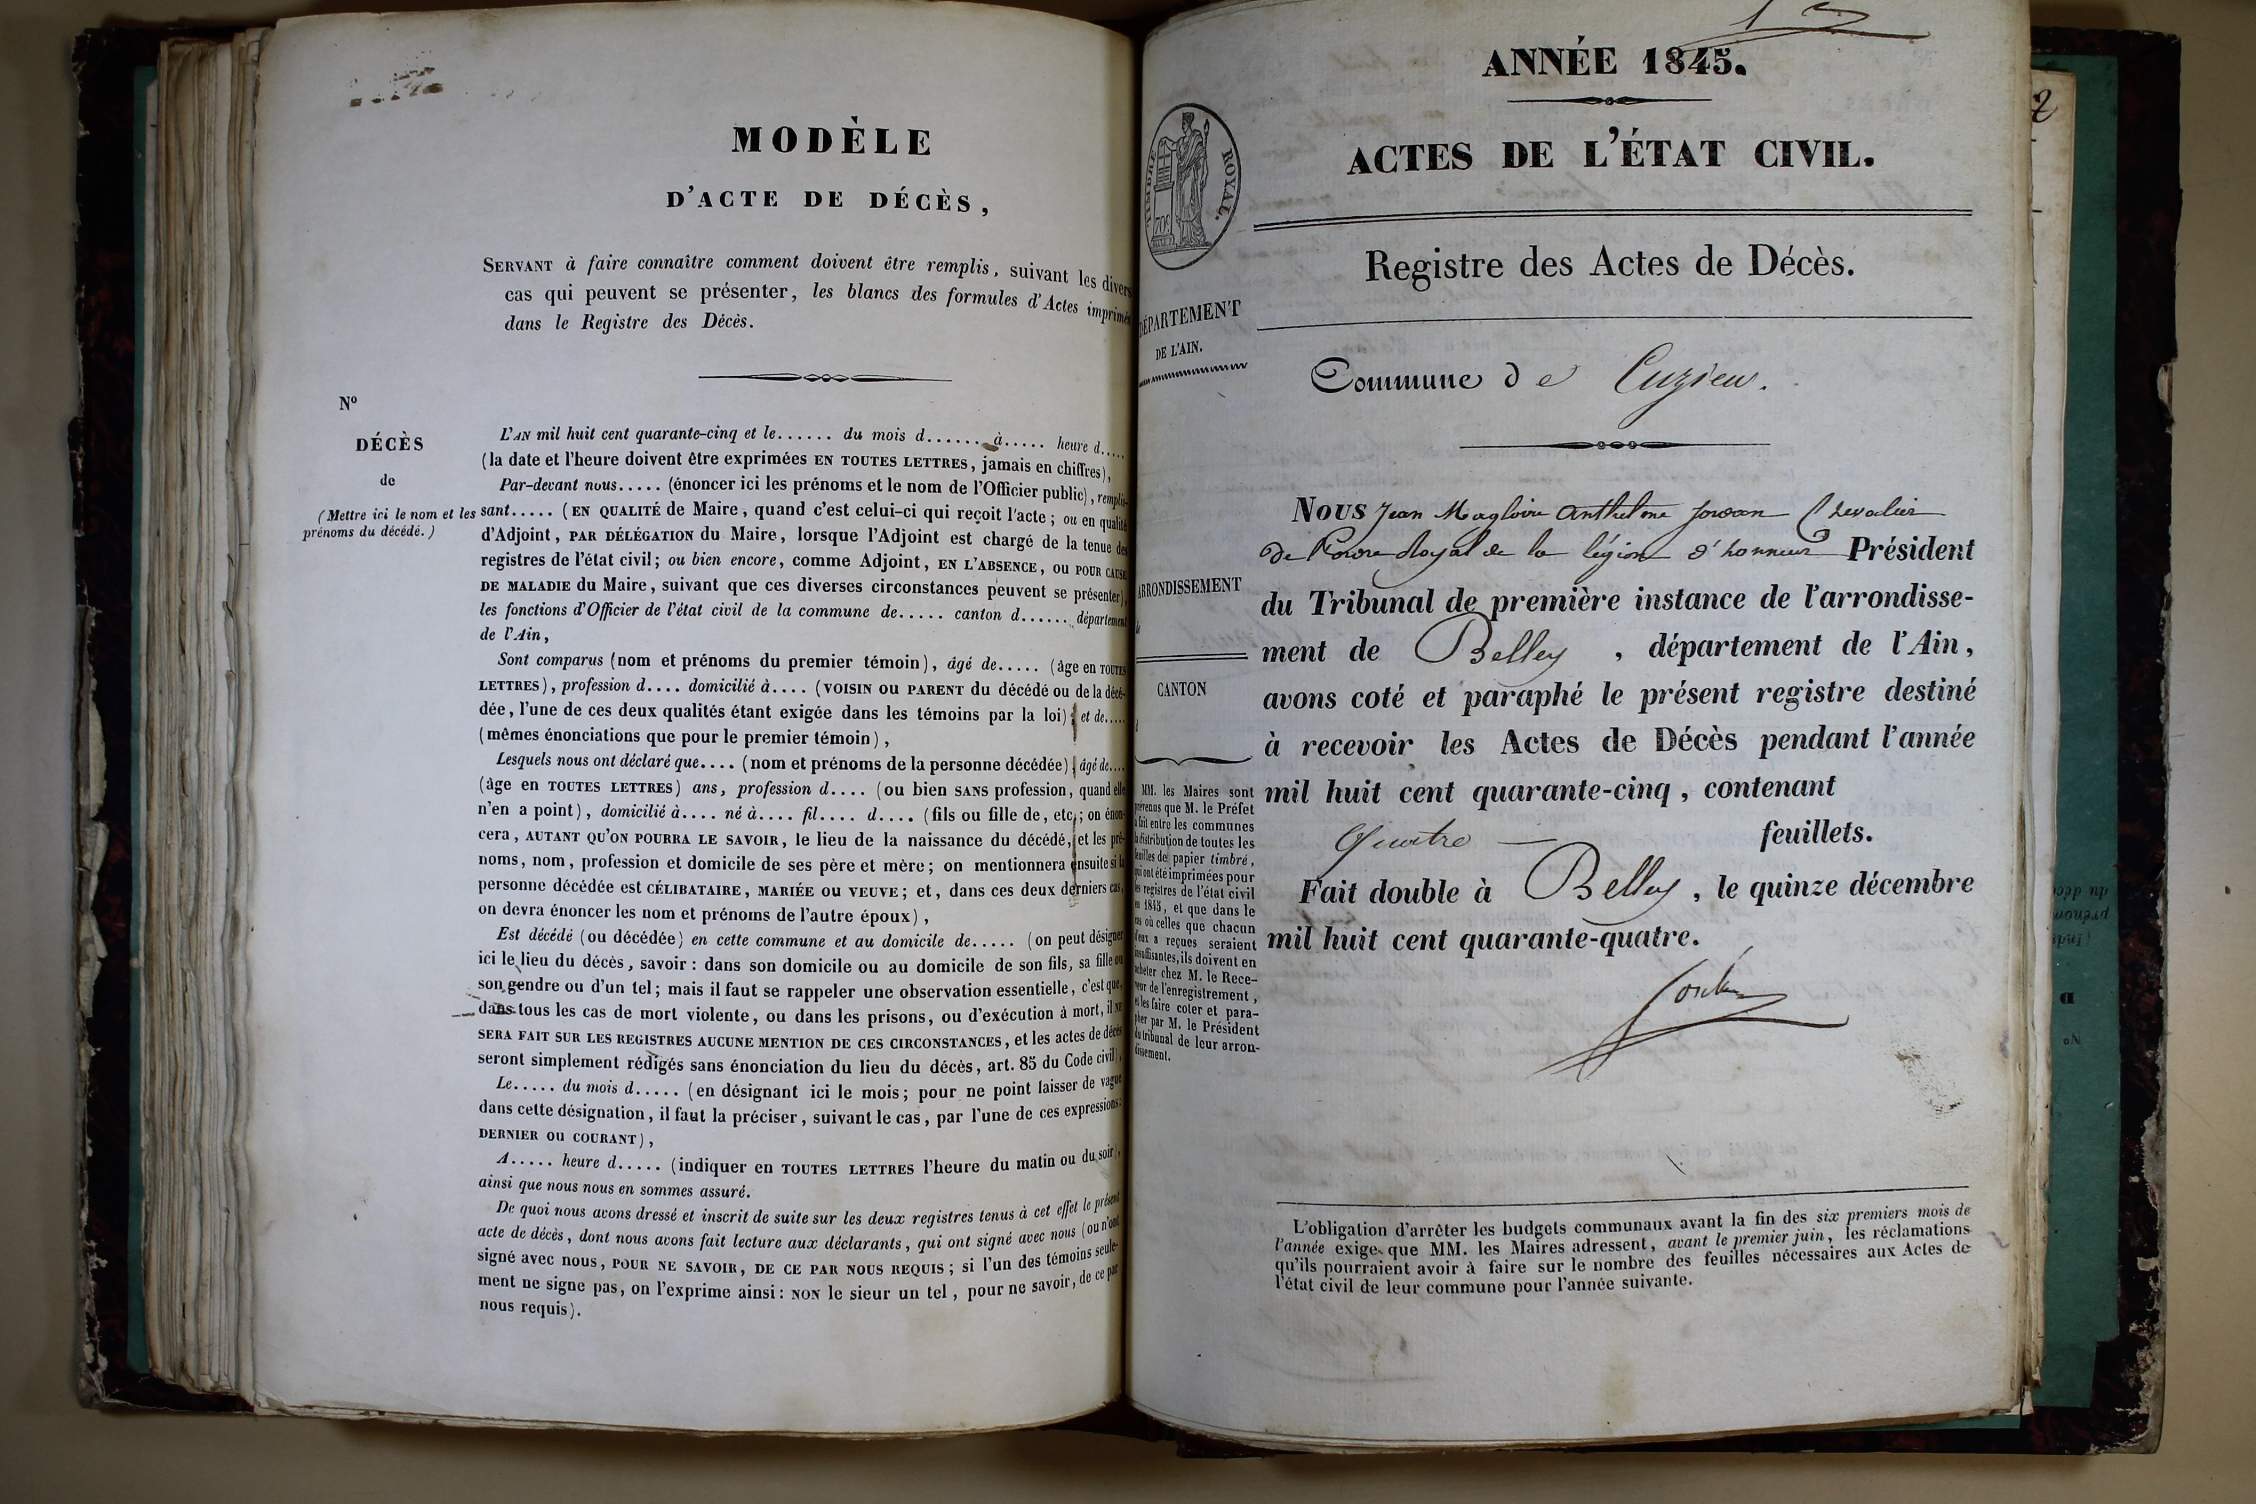 MODÈLE
D'ACTE DE DÉCÈS,
SERVANT à faire connaître comment doivent être remplis, suivant les divers
cas qui peuvent se présenter, les blancs des formules d'Actes imprimés
dans le Registre des Décès.
N°
DÉCÈS
de
(Mettre ici le nom et les
prénoms du décédé.)
L'AN mil huit cent quarante-cinq et le...... du mois d...... à..... heure d.....
(la date et l'heure doivent être exprimées EN TOUTES LETTRES, jamais en chiffres),
Par-devant nous..... (énoncer ici les prénoms et le nom de l'Officier public), remplis-
sant..... (EN QUALITÉ de Maire, quand c'est celui-ci qui reçoit l'acte; ou en qualité
d'Adjoint, PAR DÉLÉGATION du Maire, lorsque l'Adjoint est chargé de la tenue des
registres de l'état civil; ou bien encore, comme Adjoint, EN L'ABSENCE, OU POUR CAUSE
DE MALADIE du Maire, suivant que ces diverses circonstances peuvent se présenter),
les fonctions d'Officier de l'état civil de la commune de..... canton d...... département
de l'Ain,
Sont comparus (nom et prénoms du premier témoin), âgé de..... (âge en TOUTES
LETTRES), profession d.... domicilié à.... (VOISIN OU PARENT du décédé ou de la décé-
dée, l'une de ces deux qualités étant exigée dans les témoins par la loi); et de.....
(mêmes énonciations que pour le premier témoin),
Lesquels nous ont déclaré que.... (nom et prénoms de la personne décédée) âgé de....
(âge en TOUTES LETTRES) ans, profession d.... (ou bien SANS profession, quand elle
n'en a point), domicilié à.... né à.... fil.... d.... (fils ou fille de, etc.; on énon-
cera, AUTANT QU'ON POURRA LE SAVOIR, le lieu de la naissance du décédé, et les pré-
noms, nom, profession et domicile de ses père et mère; on mentionnera ensuite si la
personne décédée est CÉLIBATAIRE, MARIÉE OU VEUVE; et, dans ces deux derniers cas,
on devra énoncer les nom et prénoms de l'autre époux),
Est décédé (ou décédée) en cette commune et au domicile de..... (on peut désigner
ici le lieu du décès, savoir: dans son domicile ou au domicile de son fils, sa fille ou
son gendre ou d'un tel; mais il faut se rappeler une observation essentielle, c'est que,
dans tous les cas de mort violente, ou dans les prisons, ou d'exécution à mort, il NE
SERA FAIT SUR LES REGISTRES AUCUNE MENTION DE CES CIRCONSTANCES, et les actes de décès
seront simplement rédigés sans énonciation du lieu du décès, art. 85 du Code civil),
Le..... du mois d..... (en désignant ici le mois; pour ne point laisser de vague
dans cette désignation, il faut la préciser, suivant le cas, par l'une de ces expressions:
DERNIER OU COURANT),
A..... heure d..... (indiquer en TOUTES LETTRES l'heure du matin ou du soir),
ainsi que nous nous en sommes assuré.
De quoi nous avons dressé et inscrit de suite sur les deux registres tenus à cet effet le présent
acte de décès, dont nous avons fait lecture aux déclarants, qui ont signé avec nous (ou n'ont
signé avec nous, POUR NE SAVOIR, DE CE PAR NOUS REQUIS; si l'un des témoins seule-
ment ne signe pas, on l'exprime ainsi: NON le sieur un tel, pour ne savoir, de ce par
nous requis).
ANNÉE 1845.
ACTES DE L'ÉTAT CIVIL.
TIMBRE ROYAL.
Registre des Actes de Décès.
DÉPARTEMENT
DE L'AIN.
Commune de Cuzieu.
NOUS Jean Magloire Anthelme Jordan Chevalier
de l'ordre Royal de la légion d'honneur Président
du Tribunal de première instance de l'arrondisse-
ment de Belley, département de l'Ain,
avons coté et paraphé le présent registre destiné
à recevoir les Actes de Décès pendant l'année
mil huit cent quarante-cinq, contenant
Quatre feuillets.
Fait double à Belley, le quinze décembre
mil huit cent quarante-quatre.
ARRONDISSEMENT
CANTON
MM. les Maires sont
prévenus que M. le Préfet
a fait entre les communes
la distribution de toutes les
feuilles de papier timbré,
qui ont été imprimées pour
les registres de l'état civil
en 1845, et que dans le
cas où celles que chacun
d'eux a reçues seraient
insuffisantes, ils doivent en
acheter chez M. le Rece-
veur de l'enregistrement,
et les faire coter et para-
pher par M. le Président
du tribunal de leur arron-
dissement.
L'obligation d'arrêter les budgets communaux avant la fin des six premiers mois de
l'année exige que MM. les Maires adressent, avant le premier juin, les réclamations
qu'ils pourraient avoir à faire sur le nombre des feuilles nécessaires aux Actes de
l'état civil de leur commune pour l'année suivante.
2